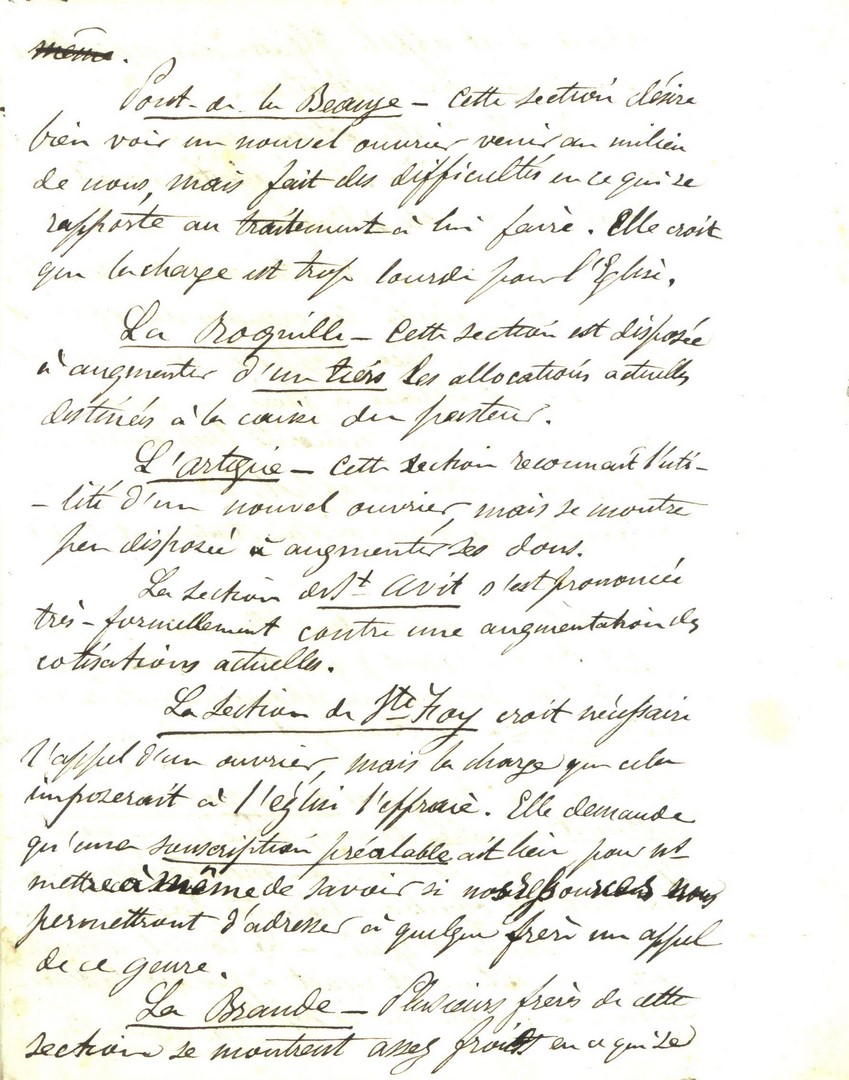 même.
Pont-de-la Beauze – Cette section désire
bien voir un nouvel ouvrier venir au milieu
de nous, mais fait des difficultés en ce qui se
rapporte au traitement à lui faire. Elle croit
que la charge est trop lourde pour l'Eglise.
La Roquille – Cette section est disposée
à augmenter d'un tiers les allocations actuelles
destinées à la caisse du pasteur.
L'artigue – Cette section reconnait l'uti-
-lité d'un nouvel ouvrier, mais se montre
peu disposée à augmenter ses dons.
La section de St Avit s'est prononcée
très-formellement contre une augmentation des
cotisations actuelles.
La Section de Ste Foy croit nécessaire
l'appel d'un ouvrier, mais la charge que cela
imposerait à l'église l'effraie. Elle demande
qu'une souscription préalable ait lieu pour ns
mettre à même de savoir si nos ressources nous
permettront d'adresser à quelque frère un appel
de ce genre.
La Brande – Plusieurs frères de cette
section se montrent assez froids en ce qui se